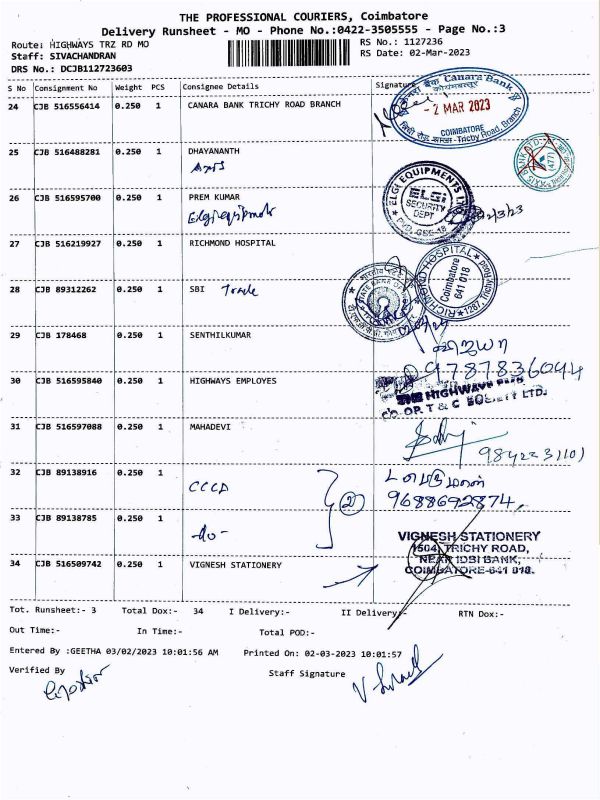 THE PROFESSIONAL COURIERS, Coimbatore
Delivery Runsheet - MO - Phone No.:0422-3505555 - Page No.:3
Route: HIGHWAYS TRZ RD MO
RS No.: 1127236
Staff: SIVACHANDRAN
RS Date: 02-Mar-2023
DRS No.: DCJB112723603
S No Consignment No Weight PCS Consignee Details Signature
24 CJB 516556414 0.250 1 CANARA BANK TRICHY ROAD BRANCH
Canara Bank
- 2 MAR 2023
COIMBATORE
Trichy Road, Branch
25 CJB 516488281 0.250 1 DHAYANANTH
26 CJB 516595700 0.250 1 PREM KUMAR
ELGI EQUIPMENTS
ELGI
SECURITY
DEPT
27 CJB 516219927 0.250 1 RICHMOND HOSPITAL
RICHMOND HOSPITAL
Coimbatore
641 018
1287, Trichy Road
28 CJB 89312262 0.250 1 SBI Trade
29 CJB 178468 0.250 1 SENTHILKUMAR
9787836094
30 CJB 516595840 0.250 1 HIGHWAYS EMPLOYES
THE HIGHWAYS EMP
CO OP. T & C SOCIETY LTD.
31 CJB 516597088 0.250 1 MAHADEVI
32 CJB 89138916 0.250 1
CCCD
2
9688692874
33 CJB 89138785 0.250 1
-do-
34 CJB 516509742 0.250 1 VIGNESH STATIONERY
VIGNESH STATIONERY
1504, TRICHY ROAD,
NEAR IDBI BANK,
COIMBATORE-641 018.
Tot. Runsheet:- 3 Total Dox:- 34 I Delivery:- II Delivery:- RTN Dox:-
Out Time:- In Time:- Total POD:-
Entered By :GEETHA 03/02/2023 10:01:56 AM Printed On: 02-03-2023 10:01:57
Verified By Staff Signature